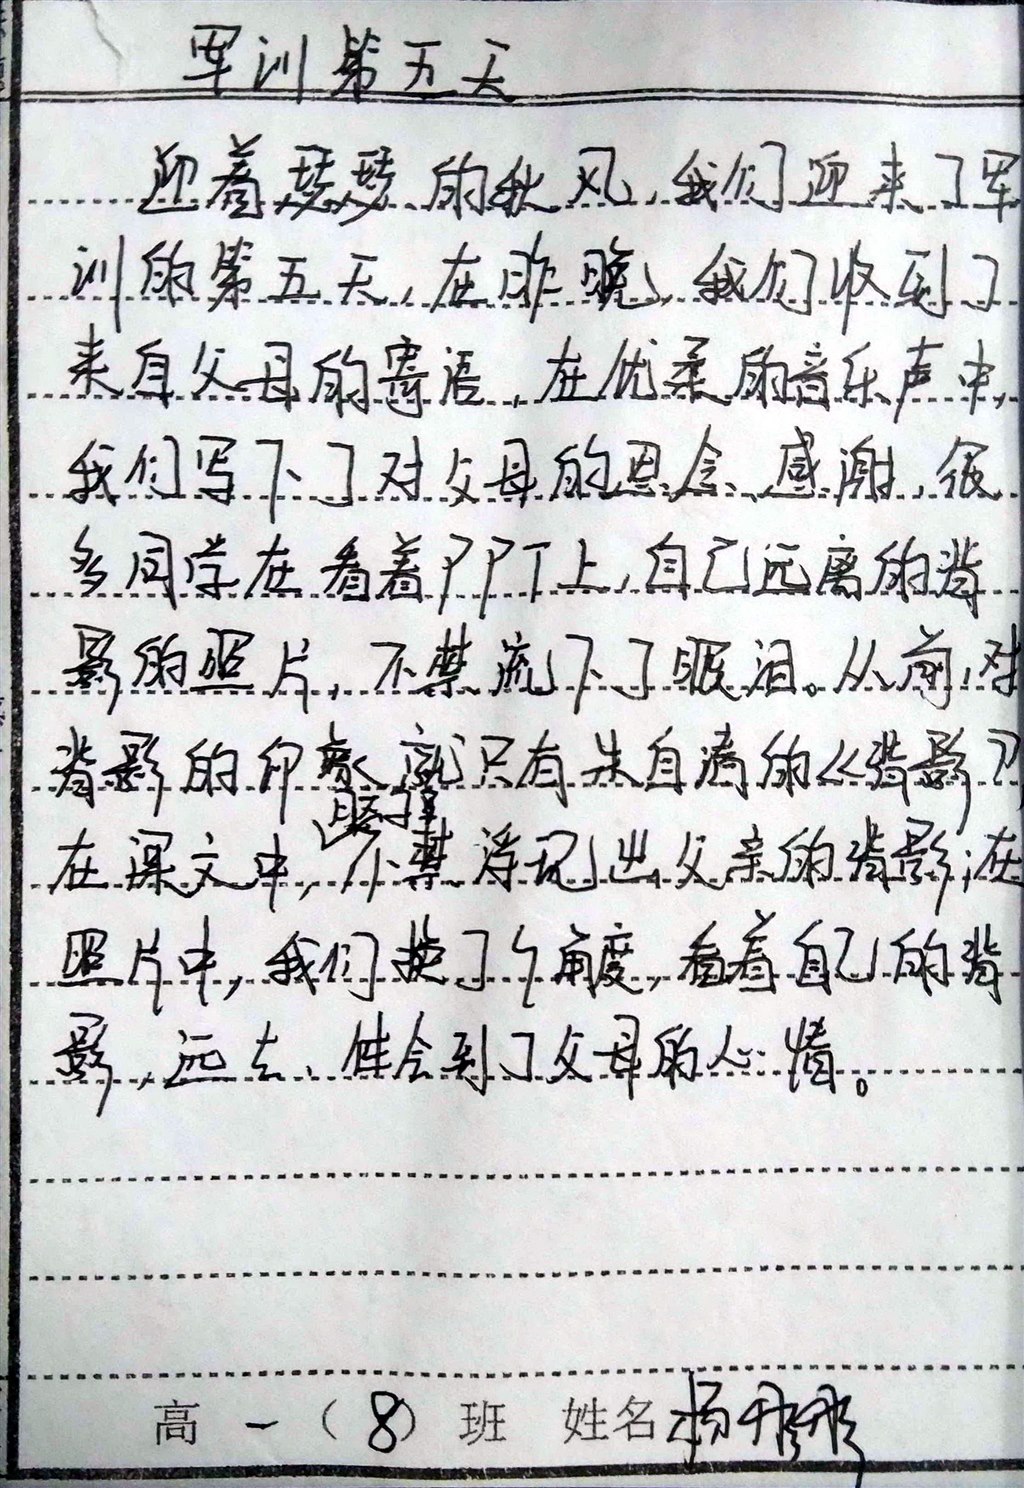 军训第五天
迎着瑟瑟的秋风,我们迎来了军
训的第五天,在昨晚,我们收到了
来自父母的寄语,在优柔的音乐声中,
我们写下了对父母的思念、感谢,很
多同学在看着PPT上,自己远离的背
影的照片,不禁流下了眼泪。从前,对
背影的印象就只有朱自清的《背影》
脑海
在课文中,不禁浮现出父亲的背影;在
照片中,我们换了个角度,看着自己的背
影,远去、体会到了父母的心情。
高一(8)班 姓名杨彤彤